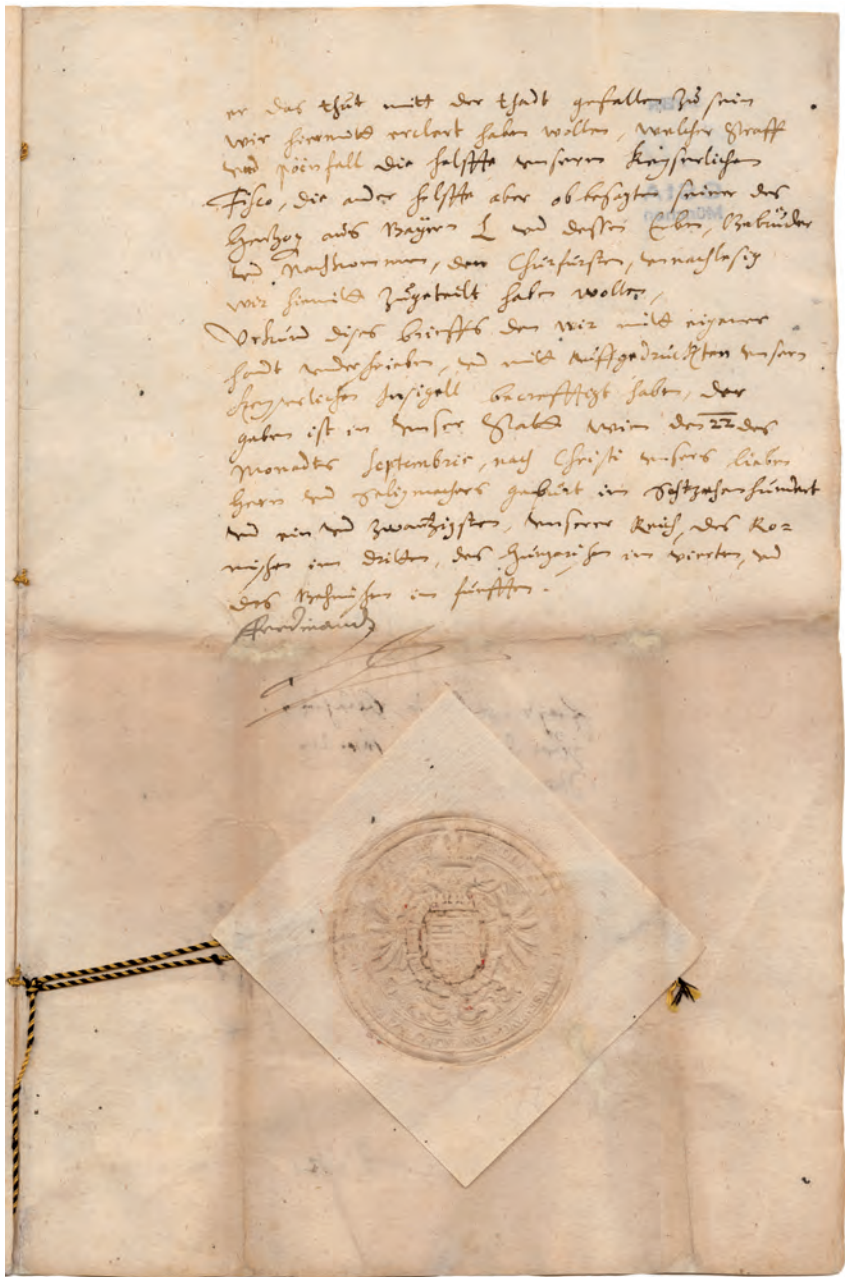 er das thut mitt der thadt gefallen zu sein
wir hiermitt erclert haben wollen, welcher Straff
und pöinfall die helffte unserm Keyserlichen
Fisco, die ander helffte aber obbesagten seiner des
Hertzog aus Bayern L und dessen Erben, Gebrüder
und Nachkommen, den Churfürsten, unnachlesig
wir hiemitt zugeteilt haben wollen,
Urkund dises brieffs den wir mitt eigener
handt underschrieben, und mitt auffgedrückten unserm
Keyserlichen Insigell becrefftigt haben, der
geben ist in unser Statt Wien den 22 des
Monadts Septembris, nach Christi unsers lieben
Herrn und Seligmachers geburt im Sechtzehenhundert
und ein und zwantzigsten, unserer Reich, des Ro=
mischen im dritten, des Hungarischen im vierten, und
des Behmischen im fünfften.
Ferdinandt